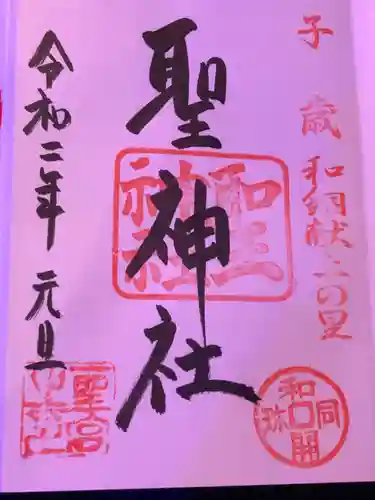 子歳
和銅献上の里
聖神社
令和二年 元旦
和同開珎